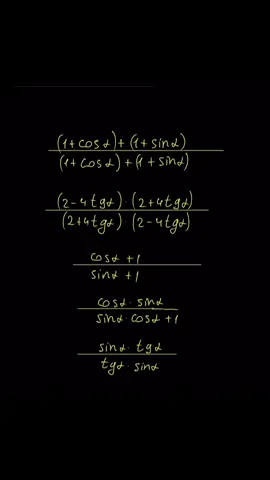 (1+cosα)+(1+sinα)
(1+cosα)+(1+sinα)
(2-4tgα)·(2+4tgα)
(2+4tgα)·(2-4tgα)
cosα+1
sinα+1
cosα·sinα
sinα·cosα+1
sinα·tgα
tgα·sinα